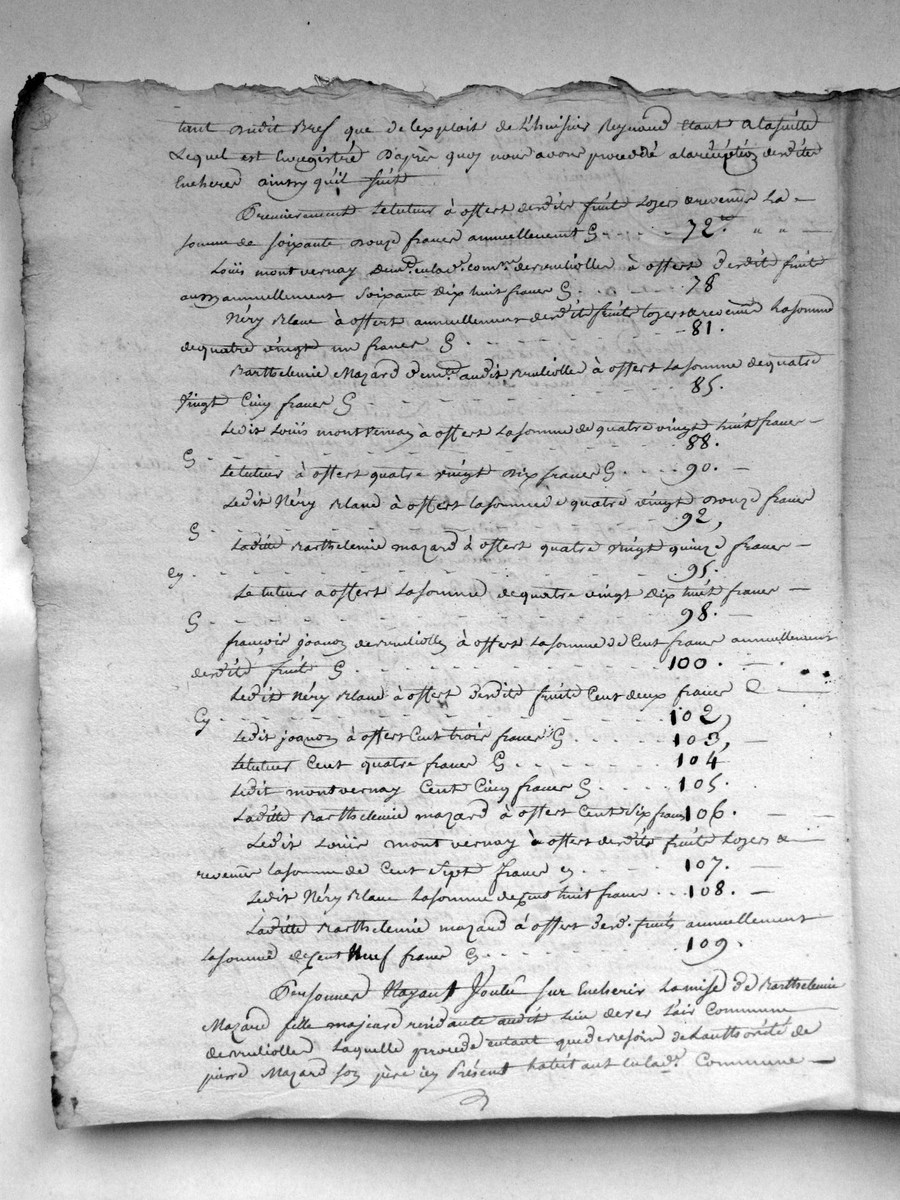 tant dudit Bref que de l'exploit de L'huissier Reynaud Etant a la suitte
Lequel est Enregistré D'après quoy nous avons procedé a la réception desdites
Encheres ainsy qu'il suit
Premierement Le tuteur à offert desdits fruits Loyers & revenus La
somme de soixante douze francs annuellement Cy 72.
Loüis montvernay Demt. en lad. Comne. de à offert desdit fruits
aussy annuellement soixante Dix huit francs Cy 78
Néry Blanc à offert annuellement desdits fruits loyers & revenus La somme
de quatre vingt un francs Cy 81.
Barthelemie Mazard Demte. audit à offert La somme de quatre
85.
Vingt Cinq francs Cy
Ledit Loüis montvernay à offert La somme de quatre vingt huit francs
88.
Cy
Le tuteur à offert quatre vingt dix francs Cy 90.
Ledit Néry Blanc à offert La somme de quatre vingt douze francs
92,
Cy
Laditte Barthelemie mazard à offert quatre vingt quinze francs
95.
Cy
Le tuteur a offert La somme de quatre vingt Dix huit francs
98.
Cy
françois joanon de à offert La somme de Cent francs annuellement
desdits fruits Cy 100.
Ledit Néry Blanc à offert desdits fruits Cent deux francs
Cy 102,
Ledit joanon à offert Cent trois francs Cy 103,
Le tuteur Cent quatre francs Cy 104
Ledit montvernay Cent Cinq francs Cy 105.
Laditte Barthelemie mazard à offert Cent Six francs 106.
Ledit Loüis montvernay à offert desdits fruits Loyers &
revenus La somme de Cent Sept francs cy 107.
Ledit Néry Blanc La somme de Cent huit francs 108.
Laditte Barthelemie mazard à offert desd. fruits annuellement
La somme de Cent Neuf francs Cy 109.
Personnes N'ayant Voulu sur Encherir La mise de Barthelemie
Mazard fille majeure residante audit Lieu de Commune
de Laquelle procede entant que de besoin de L'authorité de
pierre Mazard son père icy Présent habitant en lad. Commune